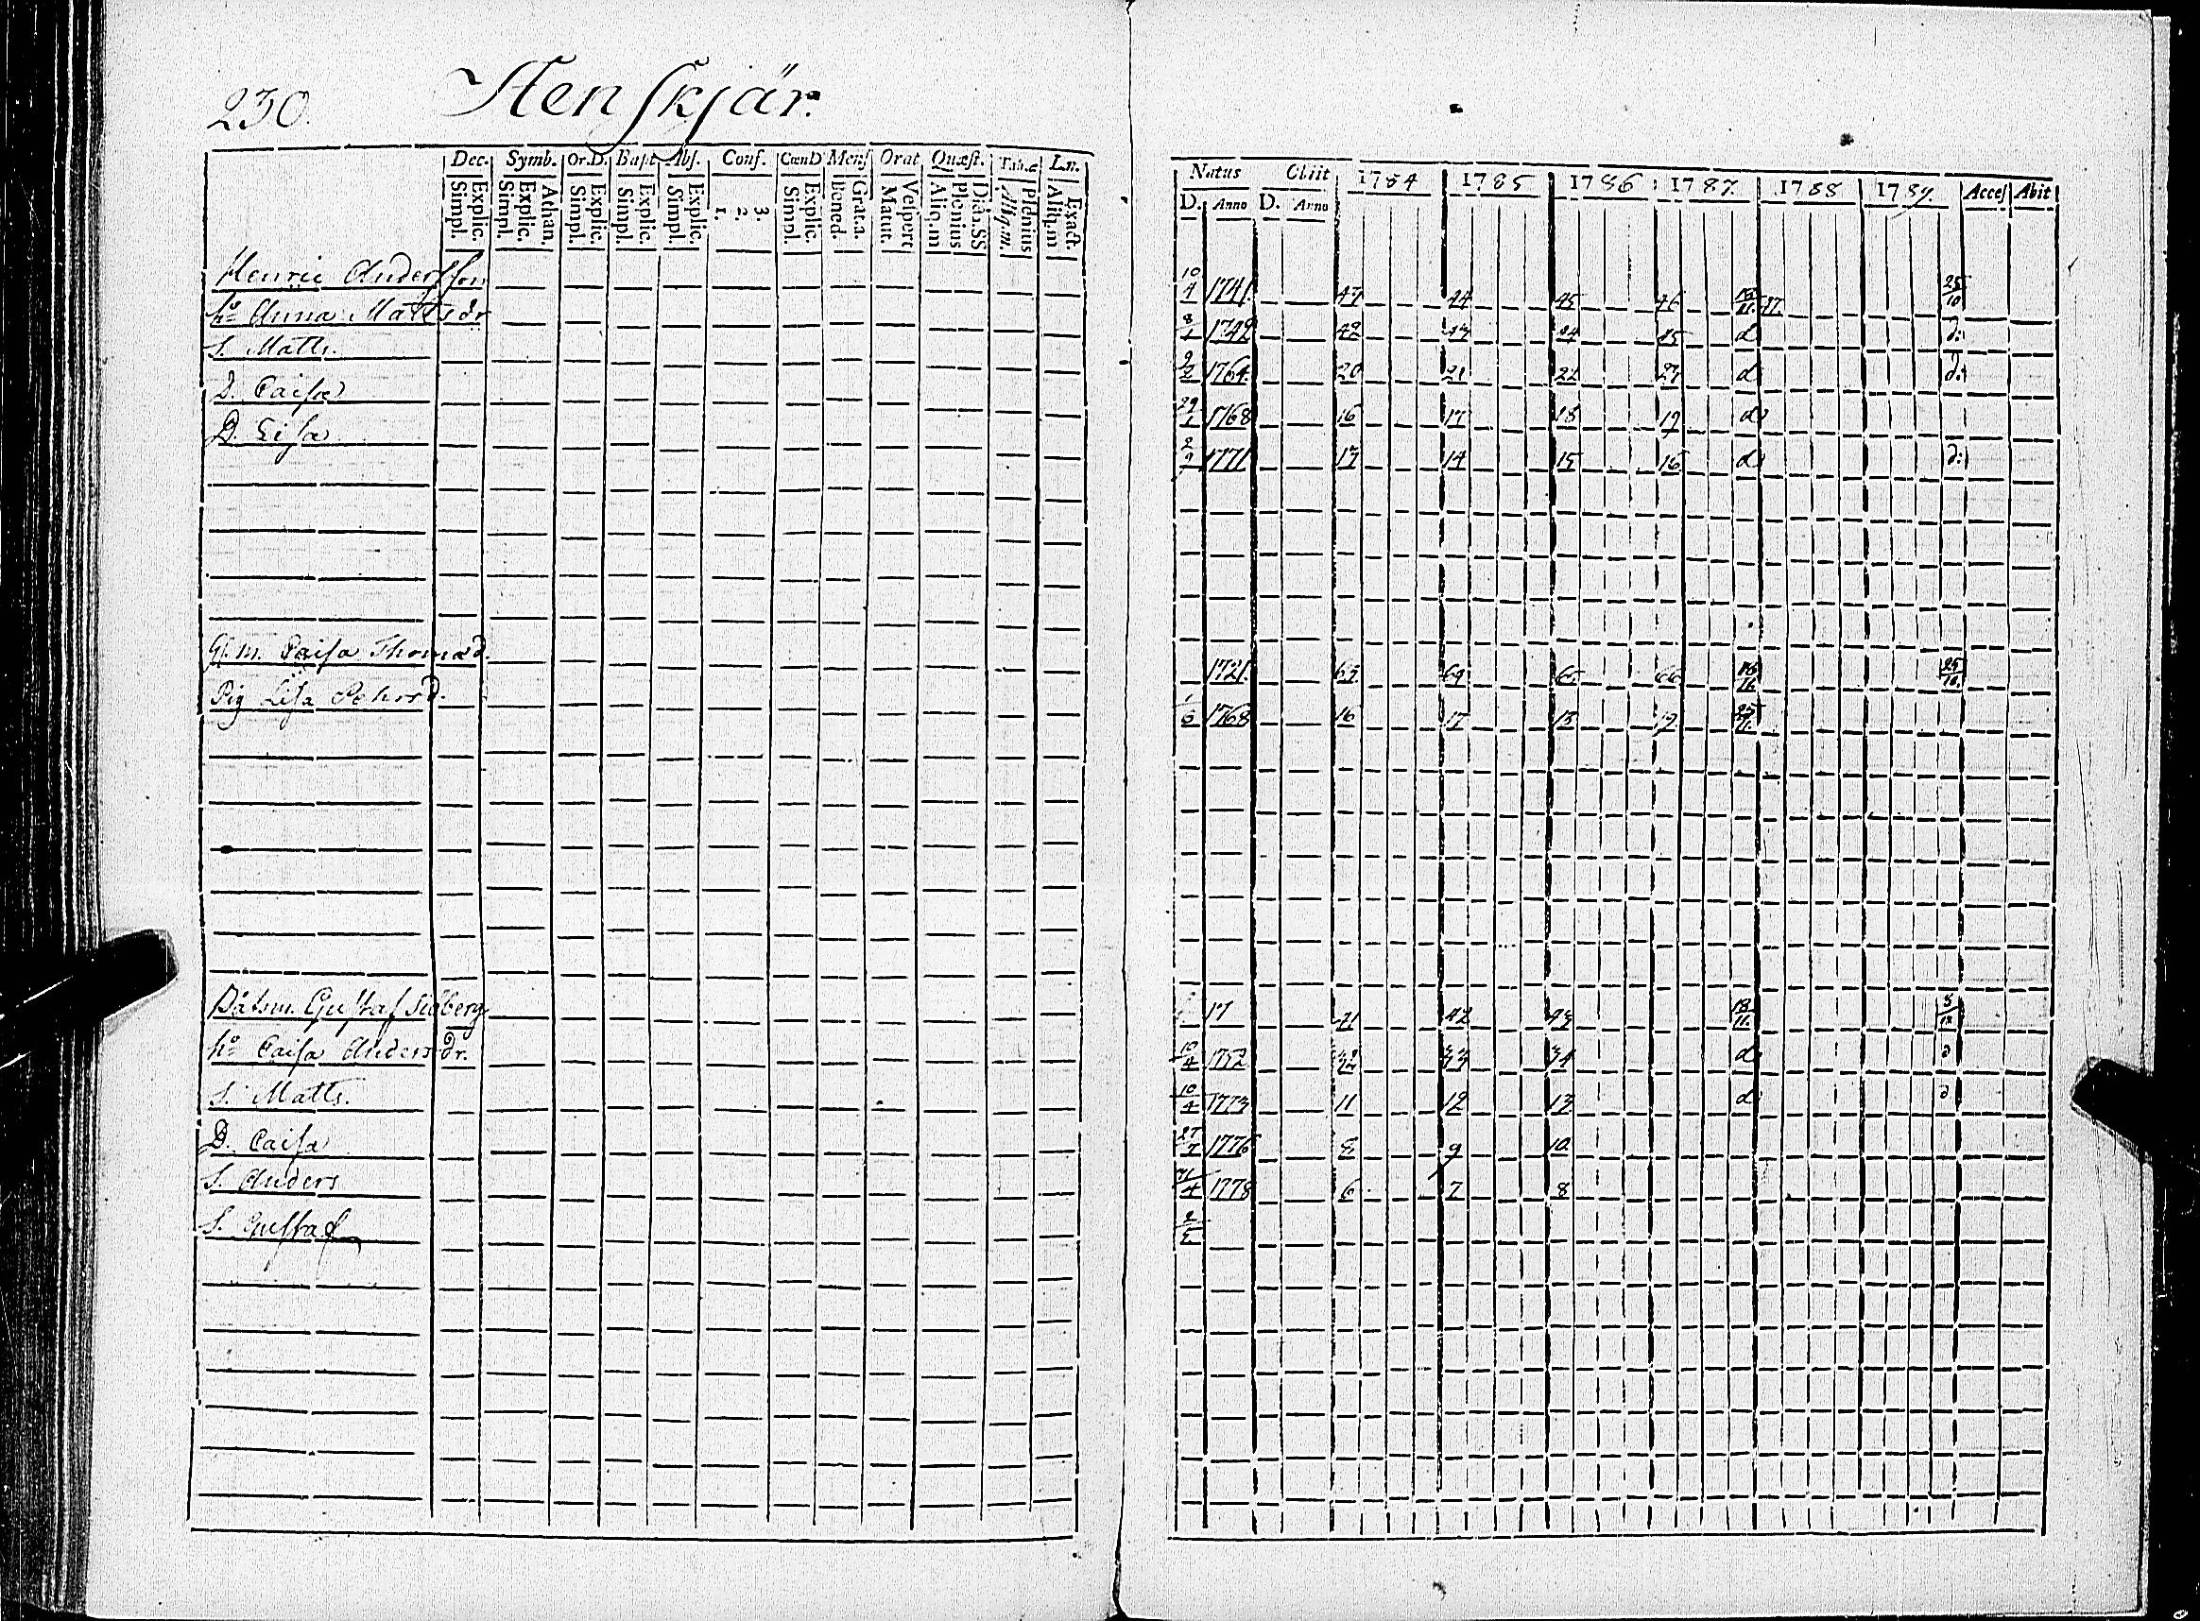 230. Stenskjär.
Dec. Symb. Or.D. Bapt. Abs. Conf. CœnD Mens Orat. Quæst. Ta .æ Ln.
Explic. Simpl. Athan. Explic. Simpl. Explic. Simpl. Explic. Simpl. Explic. Simpl. 3. 2. 1. Explic. Simpl. Grat.a. Bened. Vespert Matut. Dict.SS Plenius Aliq.m Plenius Aliq.m. Exact. Aliq.m
Natus Obiit 1784 1785 1786 1787. 1788 1789. Acces Abit
D. Anno D. Anno
Henric Andersson 10/4 1741. 43 44 45 46 87. 25/10
ho Anna Mattsdr 8/1 1742 42 43 44 45 d d:
S. Matts. 9/2 1764. 20 21 22 23 d d:
D. Caisa 29/1 1768 16 17 18 19 d
D. Lisa 2/9 1771 13 14 15 16 d d:
Gl. m. Caisa Thomæd. 1721. 63 64 65 66 25/10.
Pig Lisa Pehrsd. 1/6 1768 16 17 18 19 25/11.
Båtsm. Gustaf Siöberg 17 41 42 43 18/11.
ho Caisa Andersdr. 10/4 1752 32 33 34 d d
S. Matts. 10/4 1773 11 12 13 d d
D. Caisa 27/7 1776 8 9 10
S. Anders 1778 6 7 8
S. Gustaf